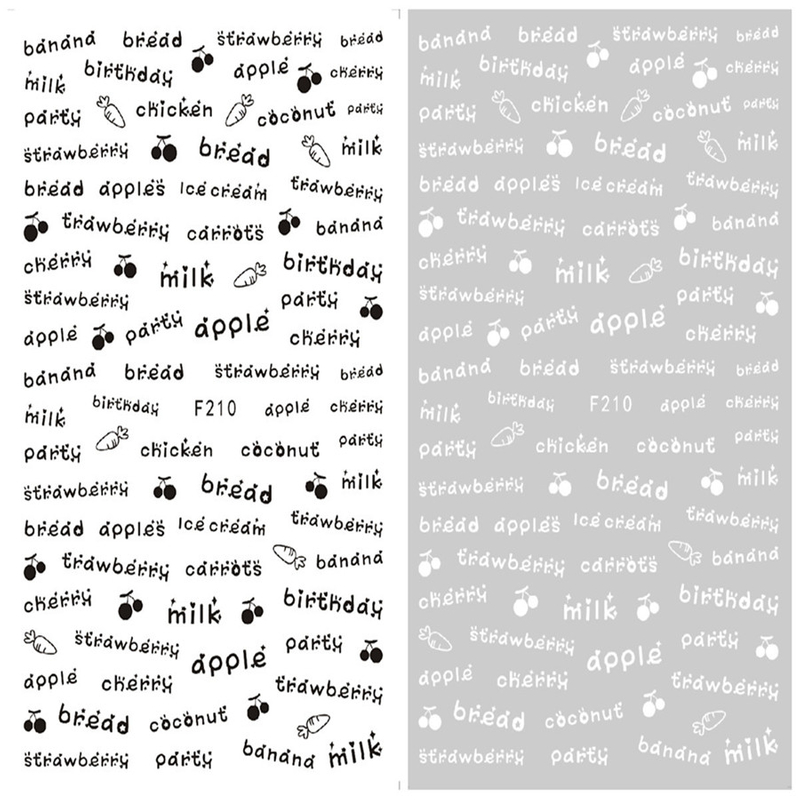 banana bread strawberry bread
milk birthday apple cherry
party chicken coconut party
strawberry bread milk
bread apples Ice cream trawberry
trawberry carrots banana
cherry milk birthday
strawberry party
apple party apple cherry
banana bread strawberry bread
milk birthday F210 apple cherry
party chicken coconut party
strawberry bread milk
bread apples Ice cream trawberry
trawberry carrots banana
cherry milk birthday
strawberry apple party
apple cherry trawberry
bread coconut
strawberry party banana milk
banana bread strawberry bread
milk birthday apple cherry
party chicken coconut party
strawberry bread milk
bread apples Ice cream trawberry
trawberry carrots banana
cherry milk birthday
strawberry party
apple party apple cherry
banana bread strawberry bread
milk birthday F210 apple cherry
party chicken coconut party
strawberry bread milk
bread apples Ice cream trawberry
trawberry carrots banana
cherry milk birthday
strawberry apple party
apple cherry trawberry
bread coconut
strawberry party banana milk